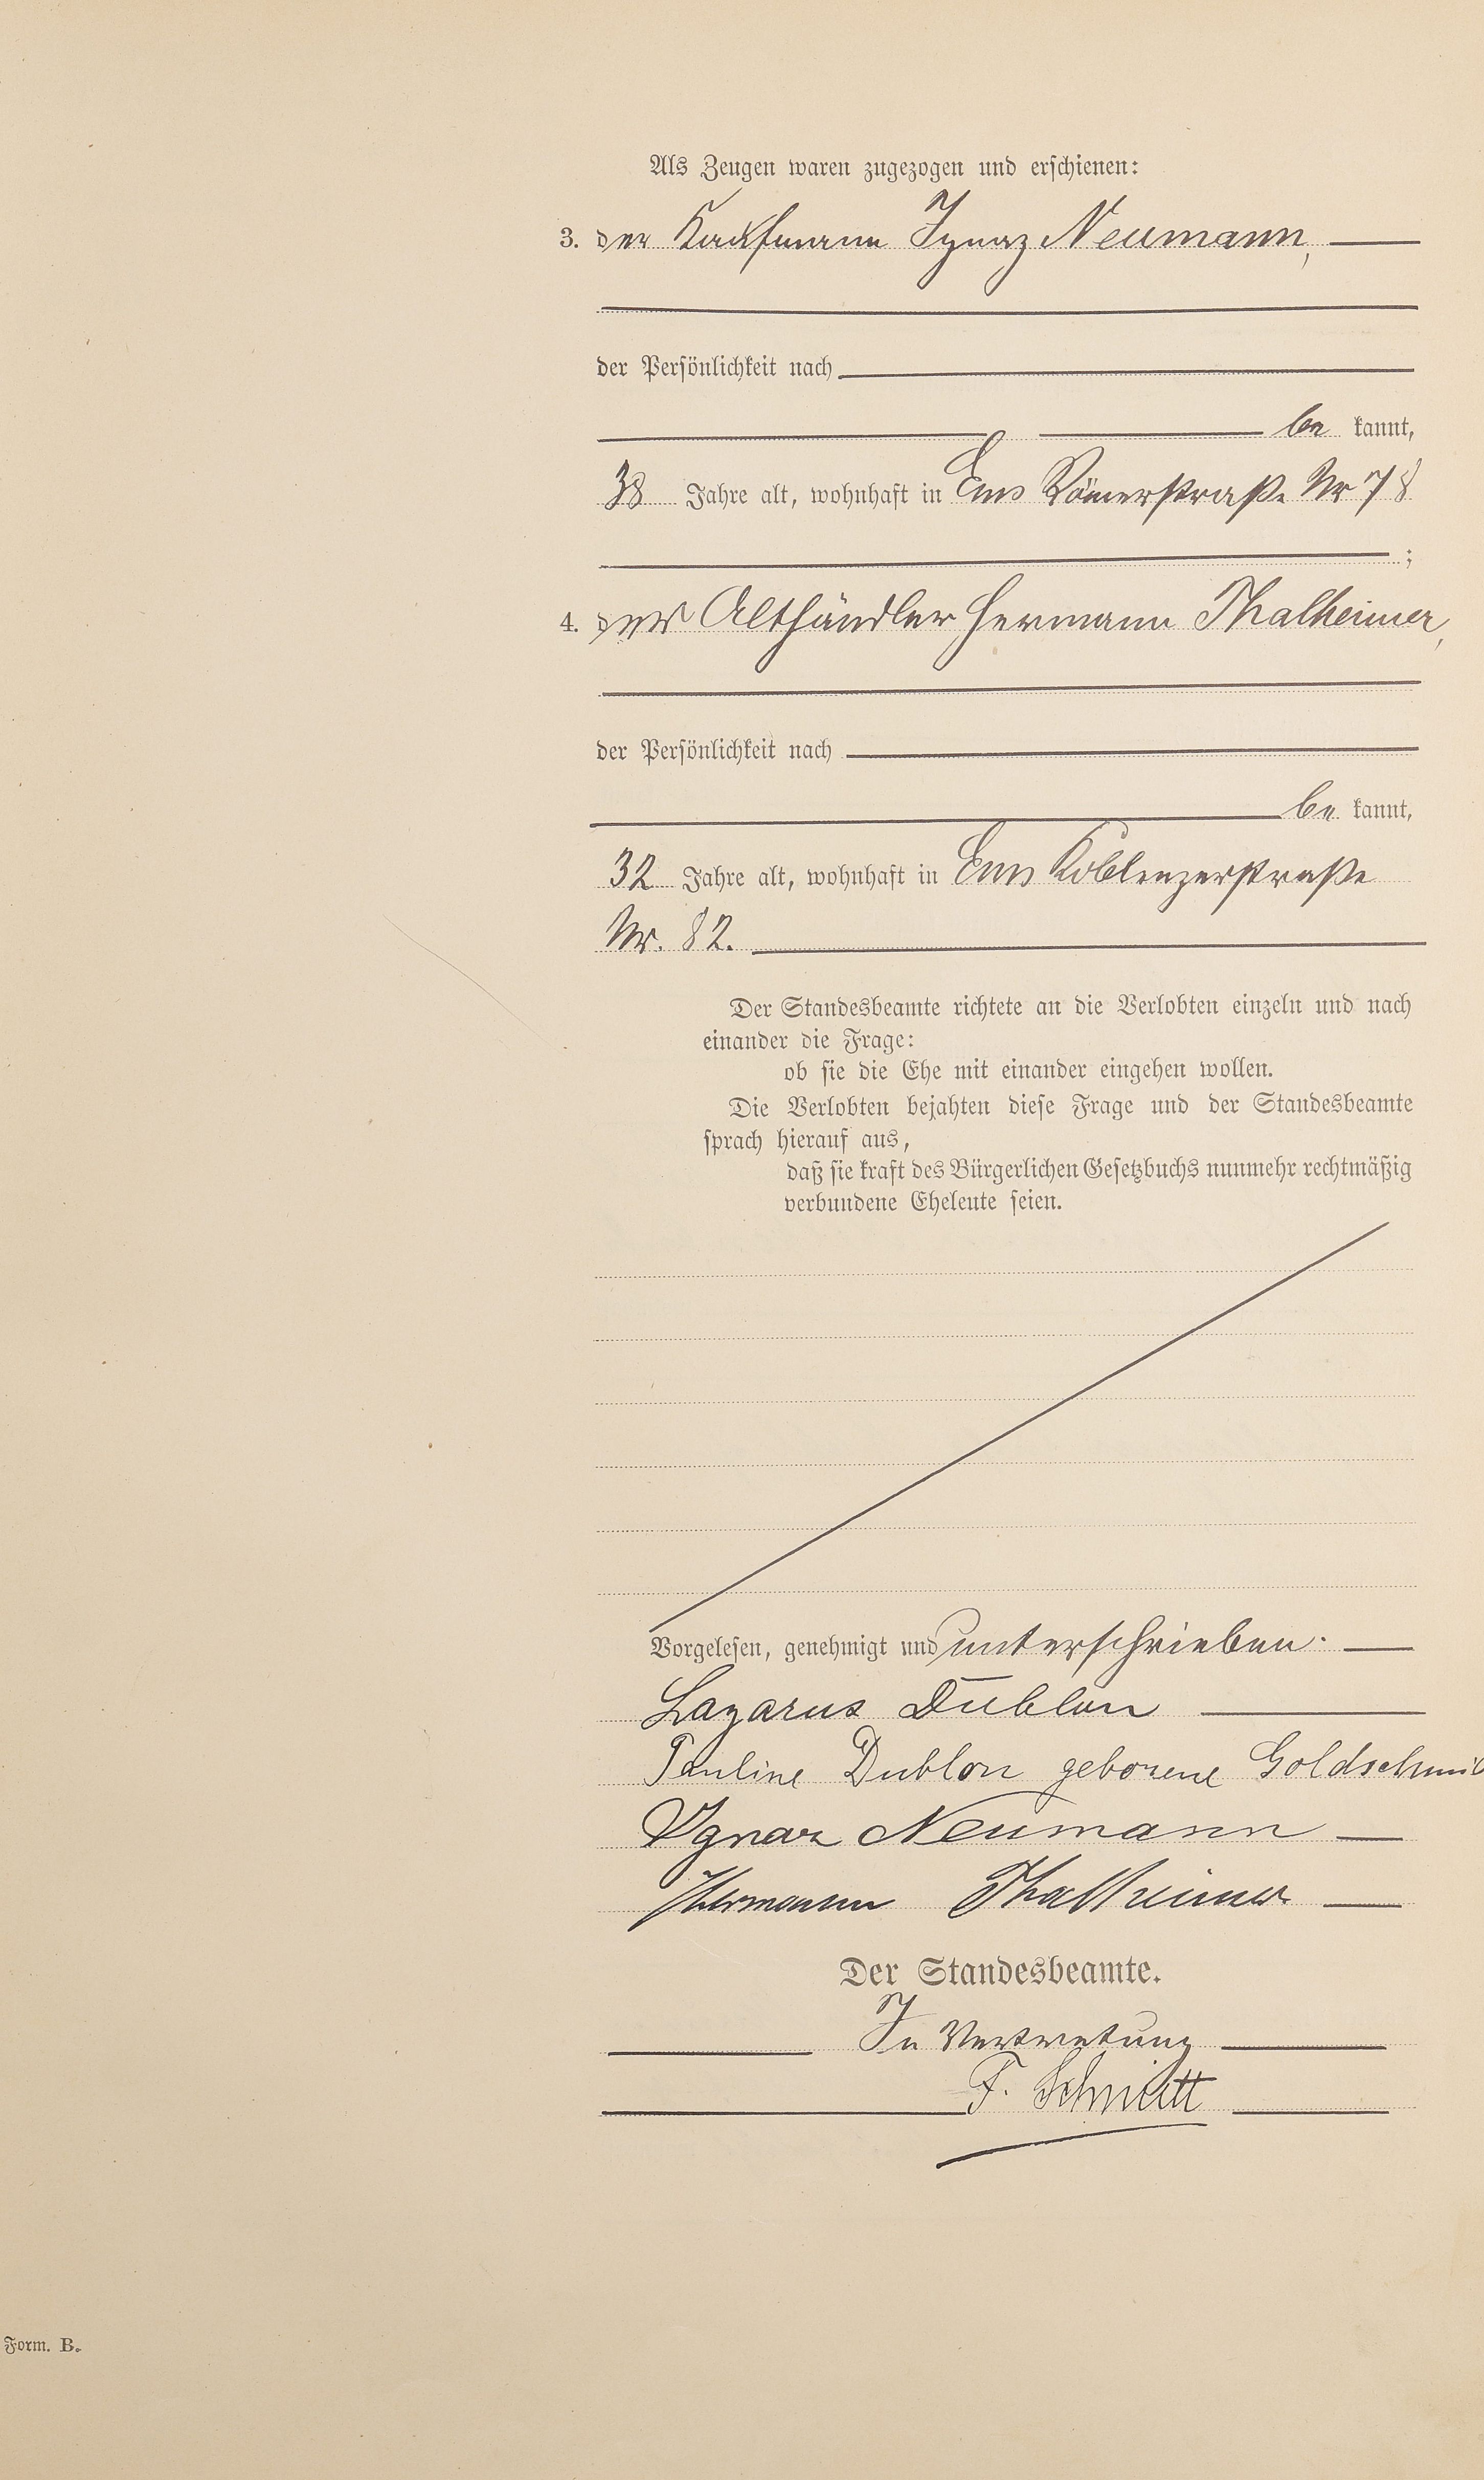 Als Zeugen waren zugezogen und erschienen:
3. der Kaufmann Ignaz Neumann,
der Persönlichkeit nach
be kannt,
38 Jahre alt, wohnhaft in Ems Römerstraße Nr 78
;
4. der Althändler Hermann Thalheimer,
der Persönlichkeit nach
be kannt,
32 Jahre alt, wohnhaft in Ems Koblenzerstraße
Nr. 82.
Der Standesbeamte richtete an die Verlobten einzeln und nach
einander die Frage:
ob sie die Ehe mit einander eingehen wollen.
Die Verlobten bejahten diese Frage und der Standesbeamte
sprach hierauf aus,
daß sie kraft des Bürgerlichen Gesetzbuchs nunmehr rechtmäßig
verbundene Eheleute seien.
Vorgelesen, genehmigt und unterschrieben.
Lazarus Dublon
Pauline Dublon geborene Goldschmi
Ignaz Neumann
Hermann Thalheimer
Der Standesbeamte.
In Vertretung
F. Schmitt
Form. B.